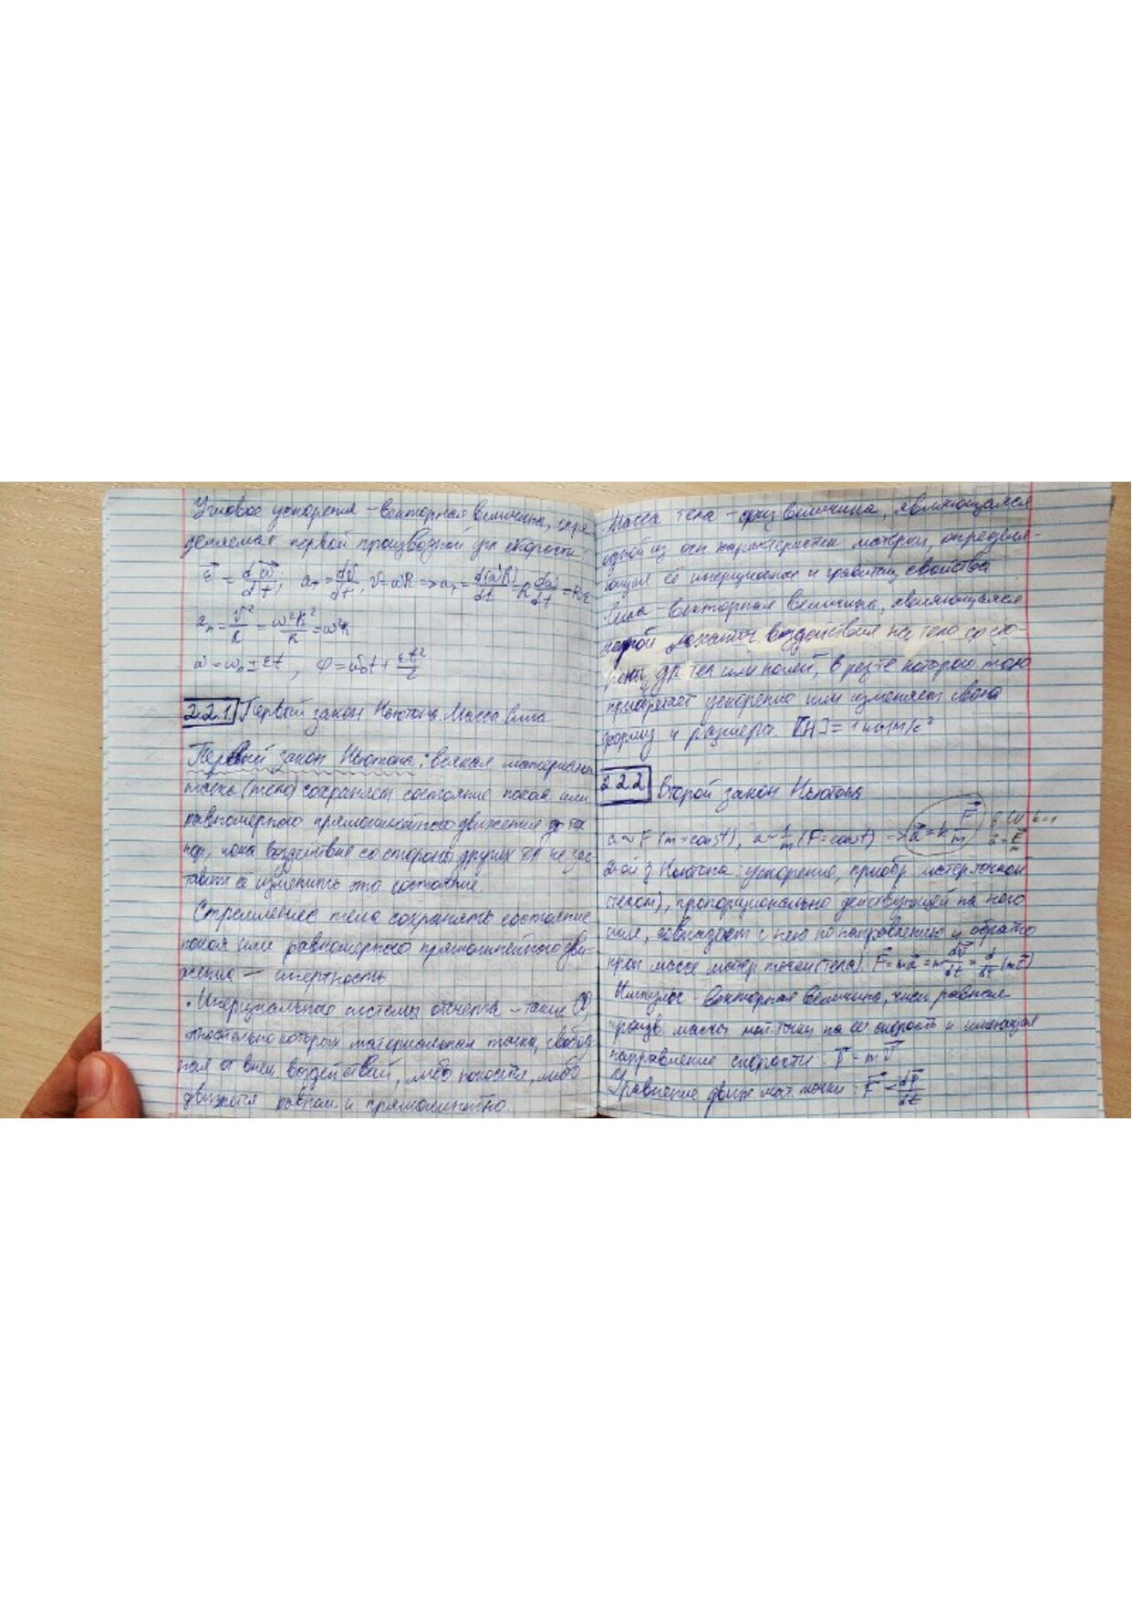 Угловое ускорения – векторная величина, опре
деляемая первой производной угл скорости:
ε⃗ = dω⃗/dt; aτ = dv/dt, v = ωR => aτ = d(ωR)/dt = R dω/dt = Rε
an = v²/R = ω²R²/R = ω²R
ω = ω₀ ± εt, φ = ω₀t + εt²/2
2.2.1 Первый закон Ньютона. Масса. Сила
Первый закон Ньютона: всякая материальн
точка (тело) сохраняет состояние покоя или
равномерного прямолинейного движения до тех
пор, пока воздействие со стороны других тел не зас-
тавит её изменить это состояние.
Стремление тела сохранять состояние
покоя или равномерного прямолинейного дви-
жения – инертность
• Инерциальные системы отсчета – такие СО,
относительно которых материальная точка, свобод-
ная от внеш воздействий, либо покоится, либо
движется равном и прямолинейно.
Масса тела – физ величина, являющаяся
одной из осн характеристик материи, определя-
ющая её инерционные и гравитац свойства
Сила – векторная величина, являющаяся
мерой механич. воздействия на тело со сто-
роны др. тел или полей, в рез-те которого тело
приобретает ускорение или изменяет свою
форму и размеры. [H] = 1 кг·м/с²
2.2.2 Второй закон Ньютона
a ~ F (m = const), a ~ 1/m (F = const) => a⃗ = k F⃗/m в СИ k=1
a⃗ = F⃗/m
2-ой з. Ньютона: ускорение, приобр матер точкой
(телом), пропорционально действующей на него
силе, совпадает с нею по направлению и обратно
проп массе матер точки (тела). F⃗ = ma⃗ = m dv⃗/dt = d/dt (mv⃗)
Импульс – векторная величина, числ равная
произв. массы мат. точки на её скорость и имеющая
направление скорости p⃗ = mv⃗
Уравнение движ мат. точки: F⃗ = dp⃗/dt